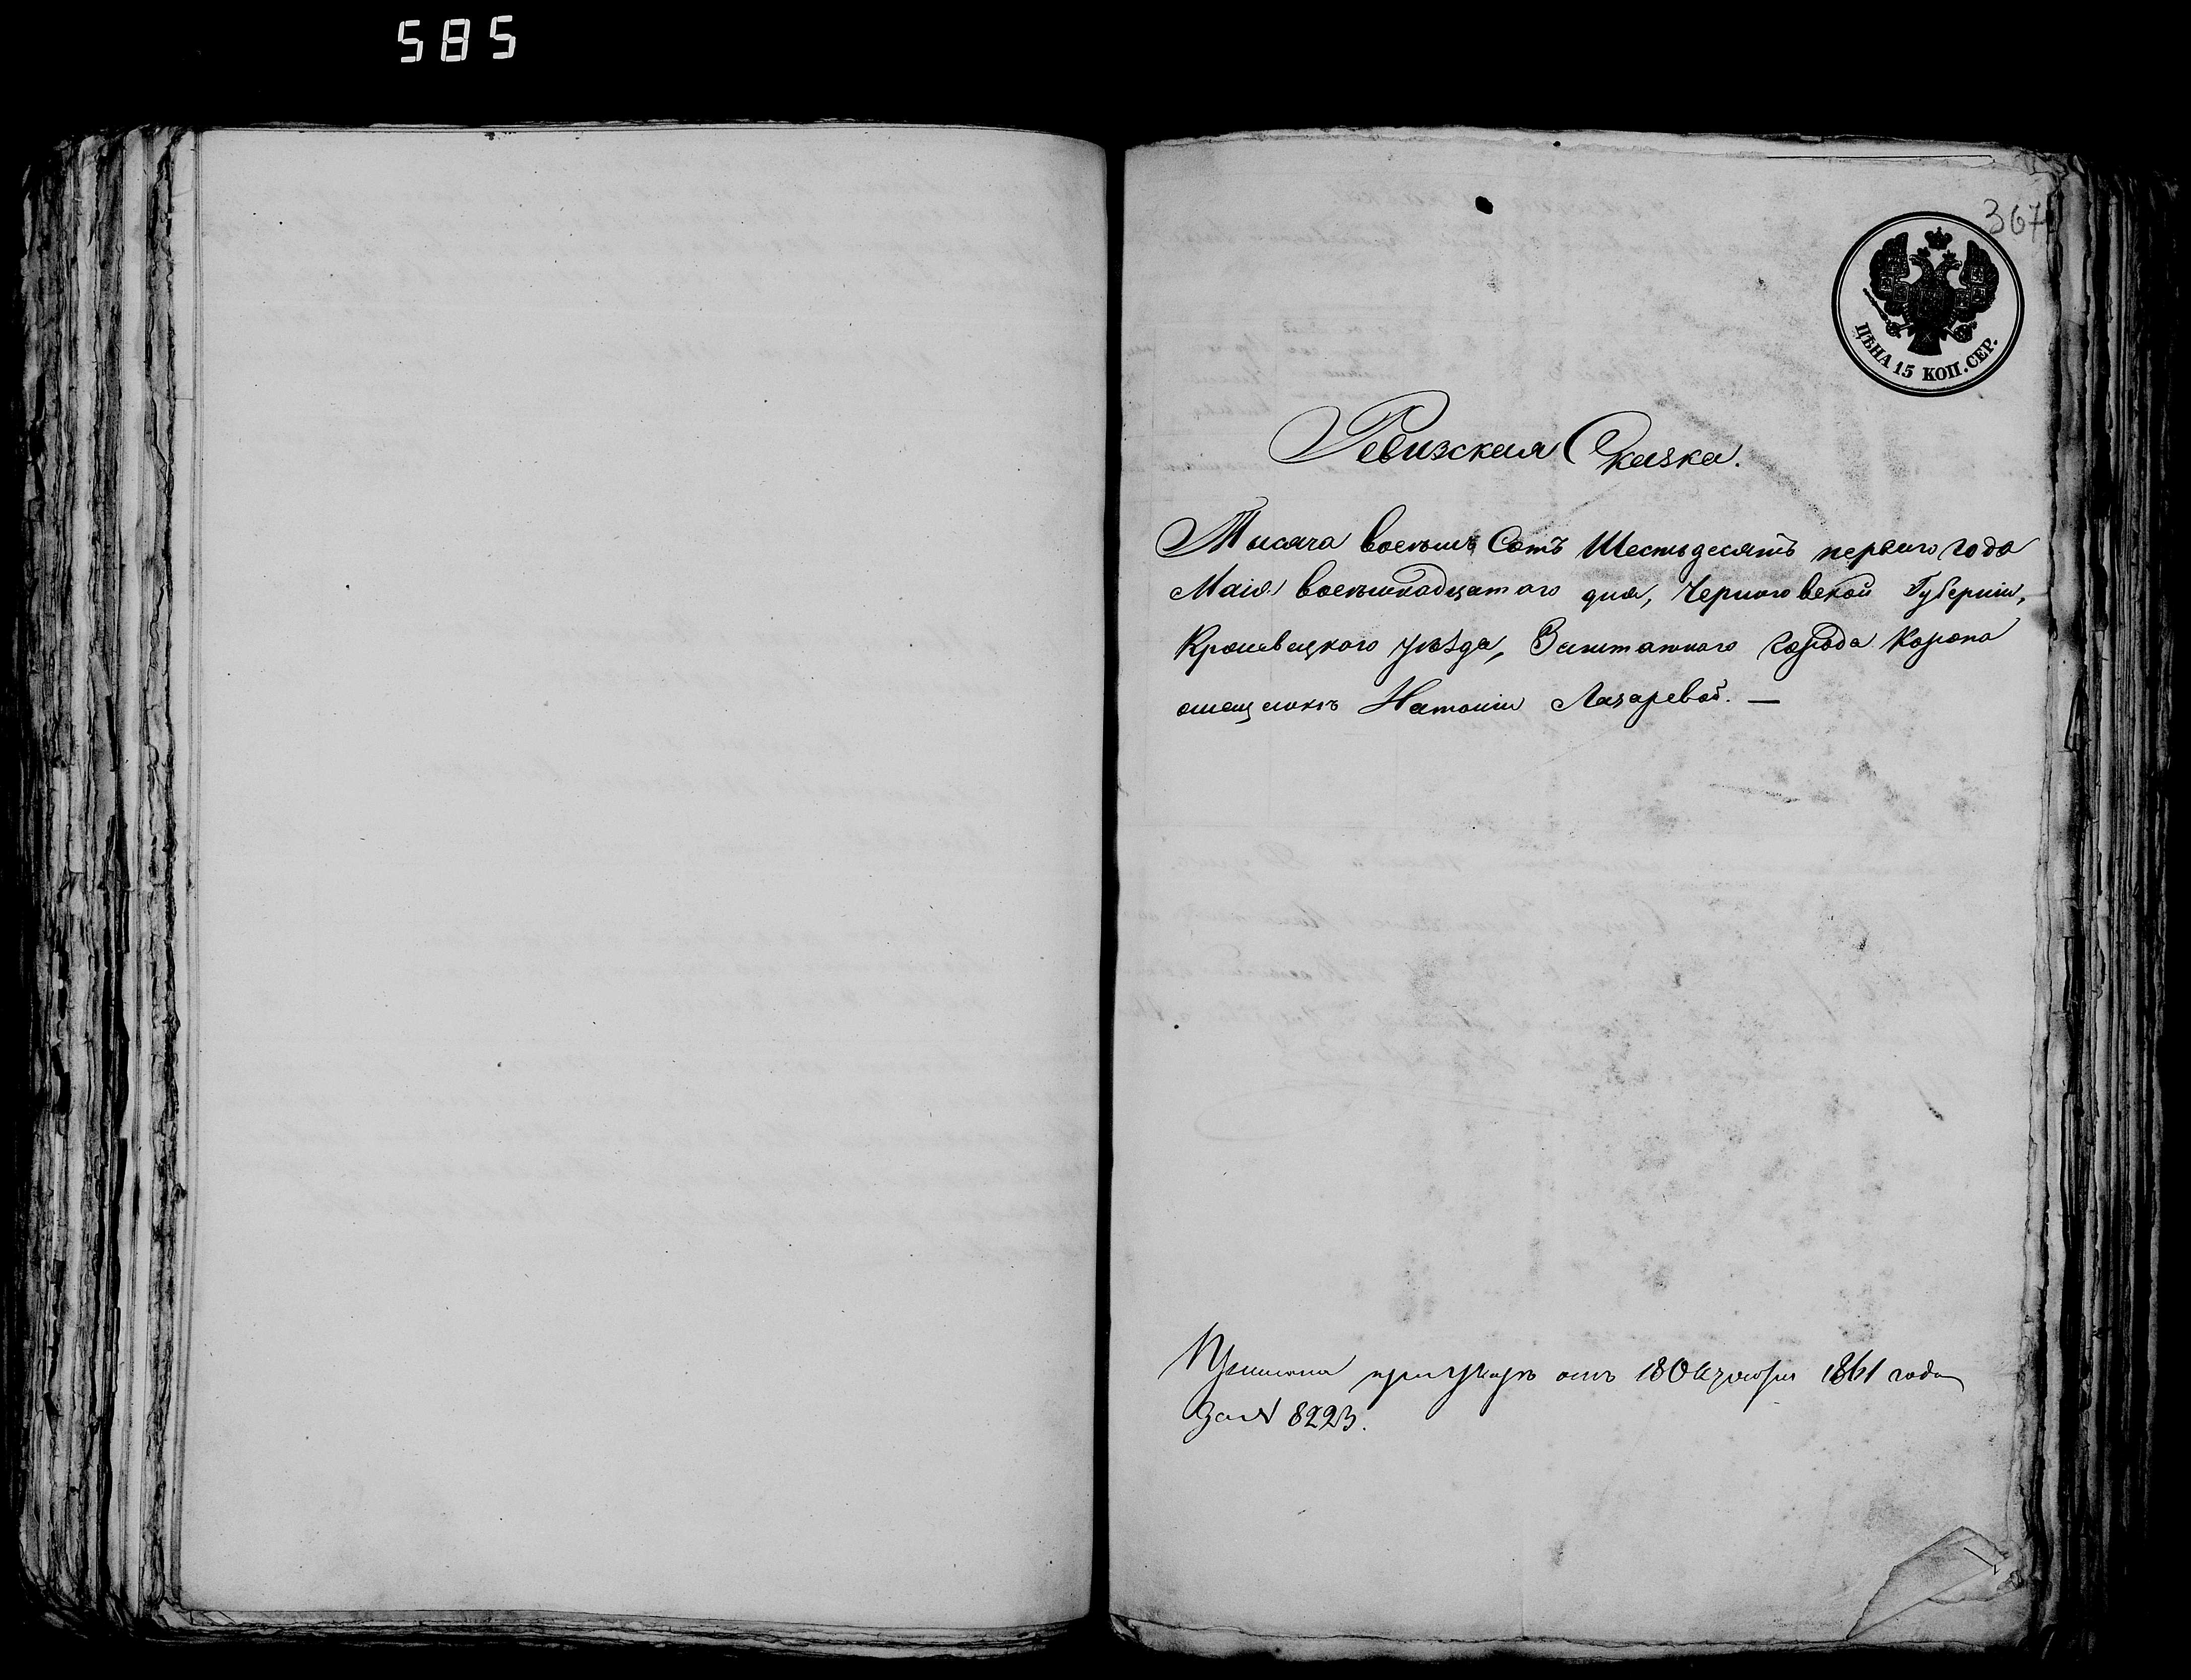 585
367
ЦѢНА 15 КОП. СЕР.
Ревизская Сказка.
Тысяча восемь Сотъ Шестьдесятъ первого года
Маія восемнадцатого дня, Черниговской Губерніи,
Кролевецкого уѣзда, Заштатного города Коропа
Лазаревой. —
при указѣ отъ 18 Октября 1861 года
За № 8223.